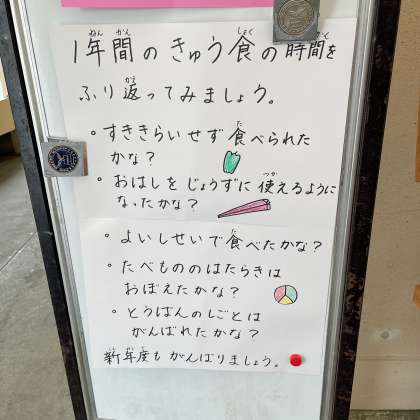 1年間のきゅう食の時間を
ふり返ってみましょう。
・すききらいせず食べられた
かな？
・おはしをじょうずに使えるように
なったかな？
・よいしせいで食べたかな？
・たべもののはたらきは
おぼえたかな？
・とうばんのしごとは
がんばれたかな？
新年度もがんばりましょう。